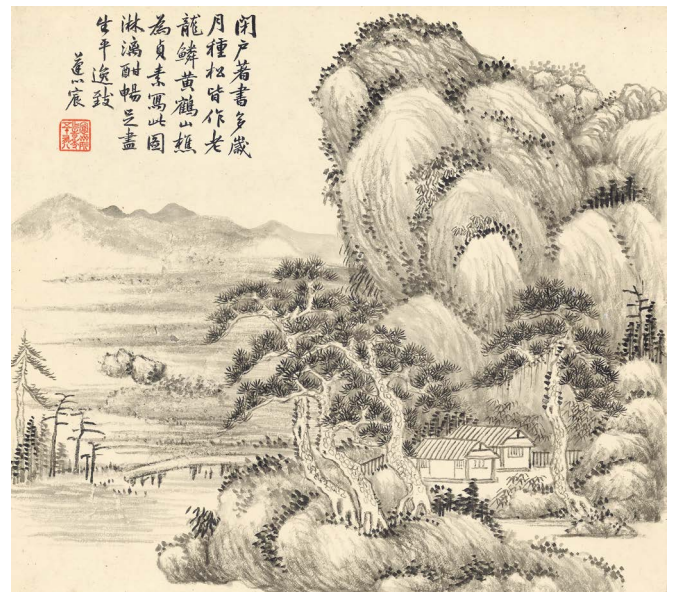 閉户著書多歲
月種松皆作老
龍鱗黃鶴山樵
為貞素寫此圖
淋漓酣暢足盡
生平逸致
蓬心宸